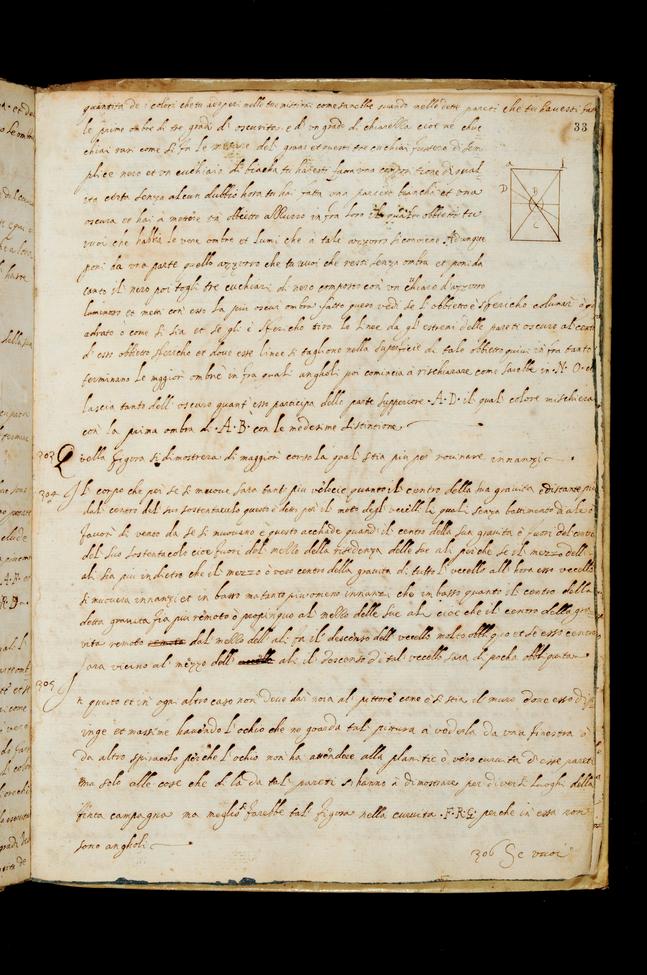 quantita de i colori che tu adoperi nelle tue misture come sarebbe quando nelle dette pareti che tu havesti fat
33
le prime ombre di tre gradi di oscurita e di un grado di chiarezza cioè
chiari come si fa le misure del grano et questi tre cuchiari fussero di sem
plice nero et un cuchiaro di biacha tu havesti fatta una compositione di qual
ita certa senza alcun dubbio hora tu hai fata una parete biancha et una
oscura et hai à metere un obbietto azzurro in fra loro il quale obbietto tu
vuoi che habbia le vere ombre et lumi che a tale azzurro si conviene Adunque
poni da una parte quello azzurro che tu vuoi che resti senza ombra et poni da
canto il nero poi togli tre cuchiari di nero composto con un chiaro d'azzurro
luminoso et meti con esso la più oscur ombra fatto questo vedi se l'obbietto è sfericho colunnare o
adrato o come si sia et se gli è sfericho tira le linee da gli estremi delle pareti oscure al cent
d'esso obbietto sfericho et dove este linee si tagliano nella superficie di tale obbietto quivi in fra tanto
terminano le maggior ombre in fra quali angholi poi comincia à rischiarare come sarebbe in ·N·O· e
lascia tanto dell'oscuro quant'esso participa della parte superiore ·A·D· il qual colore mischiera
con la prima ombra di ·A·B· con le medesime distincione
303 Quella figura si dimostrera di maggior corso la qual stia più per rovinare innanzi
304 Il corpo che per se si muove sara tant più veloce quanto il centro della sua gravita è distante più
dal centro del suo sostentaculo questo è detto per il moto degli uccelli li quali senza battimento di ale ò
favori di vento da se si muovano è questo accade quand il centro della sua gravita è fuori del centro
del suo sostentacolo cioe fuori del mezzo della risidenza delle sue ali perche se il mezzo dell
ali sia piu indietro che il mezzo è vero centro della gravita di tutto l'uccello all hora esso uccello
si muovera innanzi et in basso ma tanto piu o meno innanzi che in basso quanto il centro della
detta gravita fia più remoto è propinquo al mezzo delle sue ali cioe che il centro della gra
vita remoto dal mezzo dell ali fa il descenso dell uccello molto obbliquo et se esso centro
sara vicino al mezzo dell ali il descenso di tal uccello sara di pocha obbliquita
305 In questo et in ogni altro caso non deve dar noia al pittore come è si stia il muro dove esso dip
inge et massime havendo l'ochio che no guarda tal pittura à vederla da una finestra ò
da altro spiracolo perche l'ochio non ha attendere alla planitie ò vero curvita d'esse pareti
ma solo alle cose che di là da tal pareti si hanno à dimostrare per diversi luoghi della
finta campagna ma meglio si farebbe tal figura nella curvita ·F·R·G· perche in essa non
sono angholi
306 Se vuoi